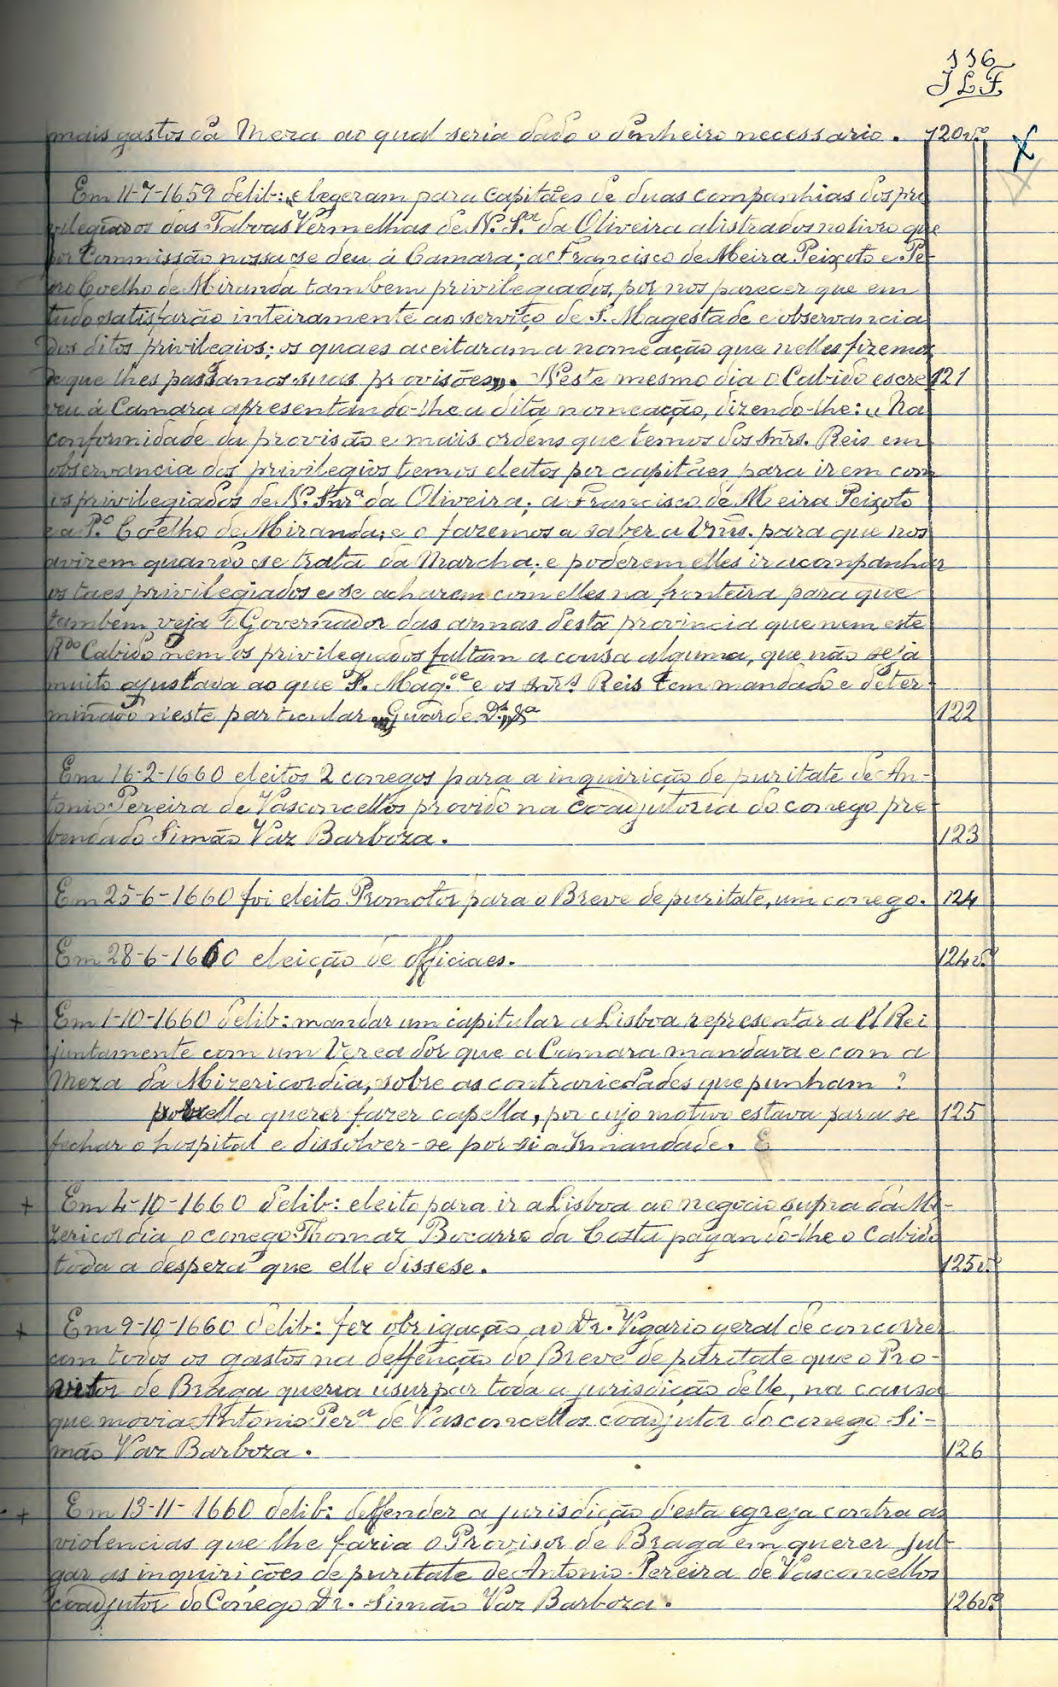 116
J L F
mais gastos da Meza ao qual seria dado o dinheiro necessario. 120v.º
Em 11-7-1659 delib: elegeram para capitães de duas companhias dos pri
vilegiados das Taboas Vermelhas de N. S.ra da Oliveira alistrados no livro que
por Commissão nossa se deu á Camara; a Francisco de Meira Peixoto e Pe-
dro Coelho de Miranda tambem privilegiados, por nos parecer que em
tudo satisfarão inteiramente ao serviço de S. Magestade e observancia
dos ditos privilegios; os quaes aceitaram a nomeação que nelles fizemos
de que lhes passamos suas provisões". Neste mesmo dia o Cabido escre 121
veu á Camara apresentando-lhe a dita nomeação, dizendo-lhe: "Na
conformidade da provisão e mais ordens que temos dos Snrs. Reis em
observancia dos privilegios temos eleitos por capitães para irem com
os privilegiados de N. Snr.ª da Oliveira, a Francisco de Meira Peixoto
e a P.º Coelho de Miranda; e o fazemos a saber a Vms. para que nos
avizem quando se trata da Marcha; e poderem elles ir acompanhar
os taes privilegiados e se acharem com elles na fronteira para que
tambem veja o Governador das armas desta provincia que nem este
R.do Cabido nem os privilegiados faltam a cousa alguma, que não seja
muito ajustada ao que S. Mag.de e os Snr.s Reis tem mandado e deter
minado neste particular Guarde D.s, &a 122
Em 16-2-1660 eleitos 2 conegos para a inquirição de puritate de An-
tonio Pereira de Vasconcellos provido na coadjutoria do conego pre-
bendado Simão Vaz Barboza. 123
Em 25-6-1660 foi eleito Promotor para o Breve de puritate, um conego. 124
Em 28-6-1660 eleição de officiaes. 124v.º
+ Em 1-10-1660 delib: mandar um capitular a Lisboa representar a El Rei
juntamente com um Vereador que a Camara mandava e com a
Meza da Mizericordia, sobre as contrariedades que punham ?
por ella querer fazer capella, por cujo motivo estava para se 125
fechar o hospital e dissolver-se por si a Irmandade. E
+ Em 4-10-1660 delib: eleito para ir a Lisboa ao negocio supra da Mi-
zericordia o conego Thomaz Bocarro da Costa pagando-lhe o Cabido
toda a despeza que elle dissese. 125v.º
+ Em 9-10-1660 delib: fez obrigação ao Dr. Vigario geral de concorrer
com todos os gastos na deffenção do Breve de puritate que o Pro-
visor de Braga queria usurpar toda a jurisdição delle, na causa
que movia Antonio Per.ª de Vasconcellos coadjutor do conego Si-
mão Vaz Barboza. 126
+ Em 13-11-1660 delib: deffender a jurisdição d'esta egreja contra as
violencias que lhe fazia o Provisor de Braga em querer jul-
gar as inquirições de puritate de Antonio Pereira de Vasconcellos
coadjutor do Conego Dr. Simão Vaz Barboza. 126v.º